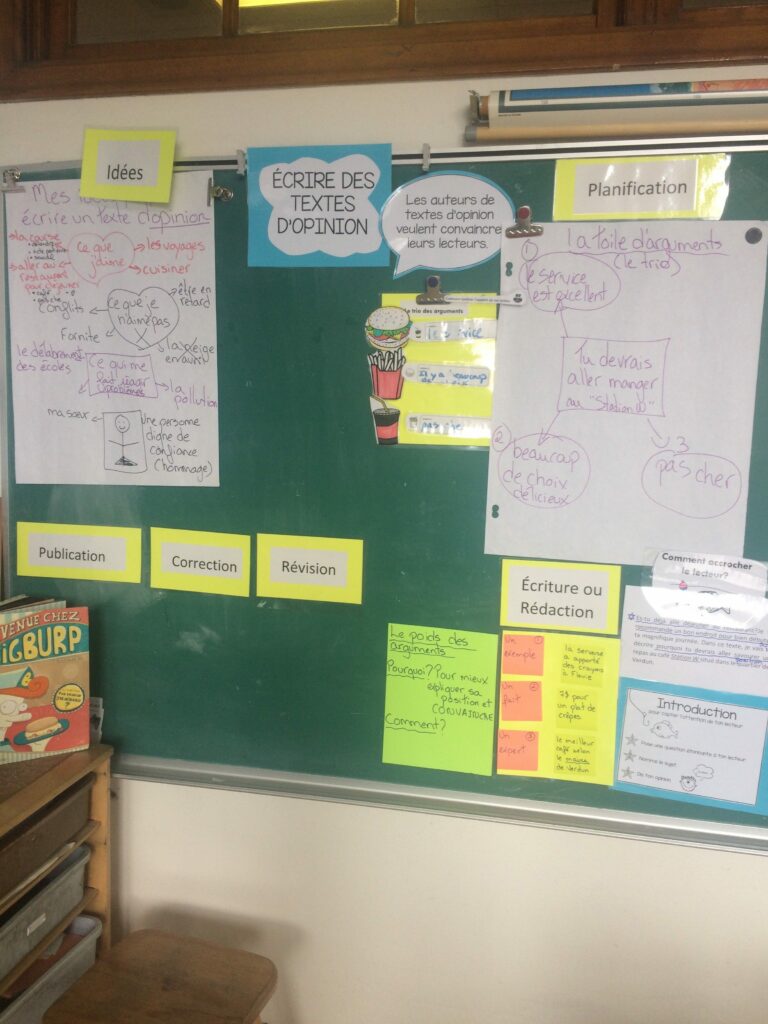 Idées
Mes
écrire un texte d'opinion
la course
ce que
j'aime
les voyages
cuisiner
aller au
restaurant
pour déjeuner
café
conflits
Fornite
ce que je
n'aime pas
être en
retard
la neige
en avril
le délabrement
des écoles
ce qui me
fait réagir
problèmes
la
pollution
ma sœur
une personne
digne de
confiance
(hommage)
ÉCRIRE DES
TEXTES
D'OPINION
Les auteurs de
textes d'opinion
veulent convaincre
leurs lecteurs.
trio des arguments
pas cher
Planification
La toile d'arguments
(le trio)
1)
le service
est excellent
Tu devrais
aller manger
au "Station W"
2)
beaucoup
de choix
délicieux
3
pas cher
Publication
Correction
Révision
Écriture ou
Rédaction
Le poids des
arguments
Pourquoi? Pour mieux
expliquer sa
position et
CONVAINCRE
Comment?
Un 1
exemple
la serveuse
a apporté
des crayons
à Flavie
Un 2
fait
7$ pour
un plat de
crêpes
Un 3
expert
le meilleur
café selon
le maire
de Verdun
Comment accrocher
le lecteur?
Verdun.
Introduction
pour capter l'attention de ton lecteur
Pose une question étonnante à ton lecteur
Nomme le sujet
Dis ton opinion
VENUE CHEZ
IGBURP